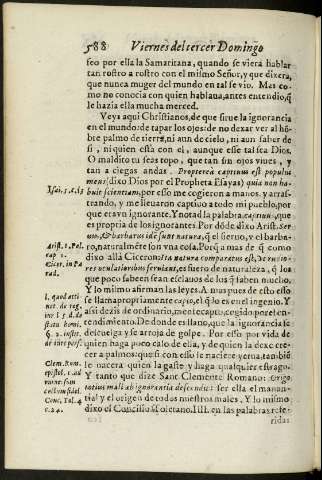 588
Viernes del tercer Domingo
seo por ella la Samaritana, quando se viera hablar
tan rostro a rostro con el mismo Señor, y que dixera,
que nunca muger del mundo en tal se vio. Mas co-
mo no conocia con quien hablaua, antes entendio, q̃
le hazia ella mucha merced.
Veys aqui Christianos, de que sirue la ignorancia
en el mundo: de tapar los ojos: de no dexar ver al hõ-
bre palmo de tierra, ni aun de cielo, ni aun saber de
si, ni quien està con el, aunque esse tal sea Dios.
O maldito tu seas topo, que tan sin ojos viues, y
tan a ciegas andas. Propterea captiuus est populus
meus (dixo Dios por el Propheta Esayas) quia non ha-
buit scientiam, por esso me cogieron a manos, y arras-
trando, y me lleuaron captiuo a todo mi pueblo, por
que erã vn ignorante. Y notad la palabra, captiuus, que
es propria de los ignorantes. Por dõde dixo Arist. Ser-
uus, & barbarus idẽ sunt natura, q̃ el sieruo, y el barba-
ro, naturalmẽte son vna cosa. Porq̃ a mas de q̃ como
dixo allà Ciceron
es fuero de naturaleza, q̃ los
que poco saben sean esclauos de los q̃ saben mucho.
Y lo mismo afirman las leyes. A mas pues de esto esso
se llama propriamente captio, el q̃ lo es en el ingenio. Y
assi dezis de ordinario, mentecapto, cogido por el en-
tendimiento. De donde es llano, que la ignorancia le
descuelga y se arroja de golpe. Por esso por vida de
quien haga poco calo de ella, y de quien la dexe cre-
cer a palmos: que si con esso le naciere yerua, tambiẽ
le nacera quien la gaste y haga qualquier estrago.
Y tanto que dize Sant Clemente Romano: Origo
totius mali ab ignorantia descendit: ser ella el manan-
tial y el origen de todos nuestros males. Y lo mismo
dixo el Concilio Toletano. IIII. en las palabras refe-
ridas
Isai. 5. c. 13
Arist. 1. Pol.
cap. 1.
Cicer. in Pa
rad.
l. quod atti-
net de reg.
iur l. 5. d. de
statu homi.
§. 2. instit.
de iure pers.
Clem. Rom.
epistol. 1. ad
Conc. Tol. 4
c. 24.